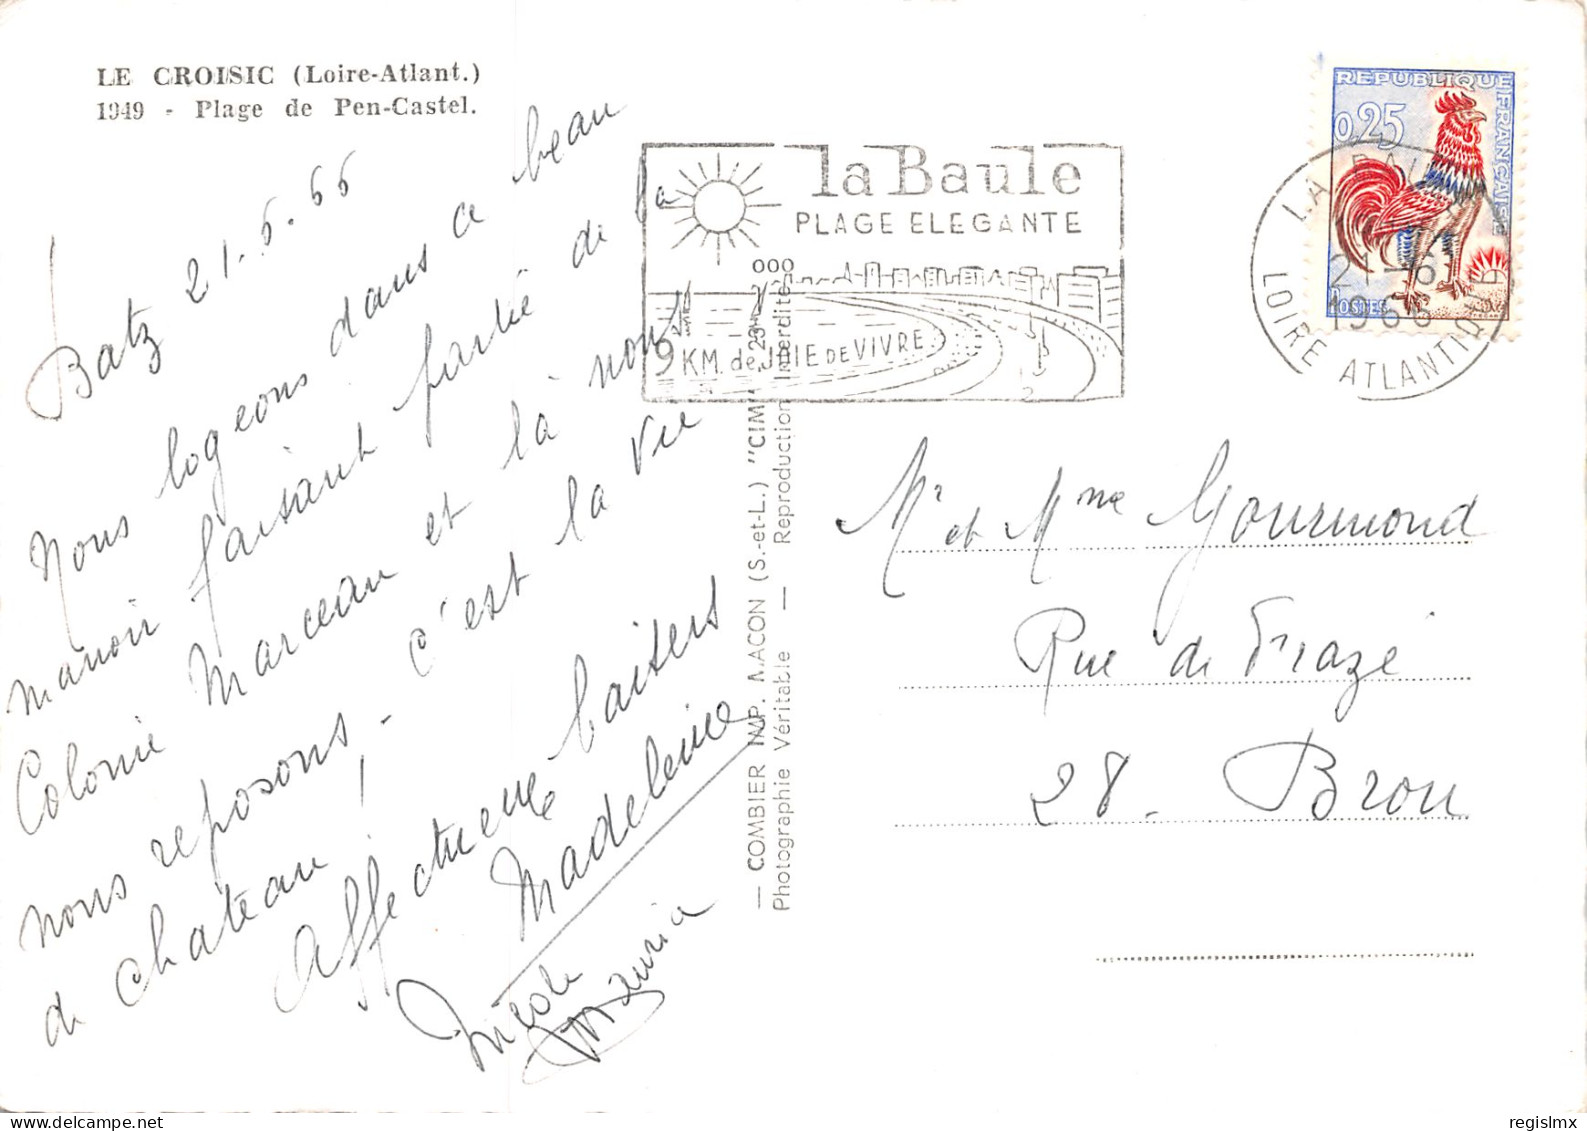 LE CROISIC (Loire-Atlant.)
1949 - Plage de Pen-Castel.
Batz 21.6.66
Nous logeons dans ce beau
manoir faisant partie de la
Colonie Marceau et là nous
nous reposons - c'est la vie
de chateau !
Affectueux baisers
Madeleine
Nicole
Mauria
— COMBIER IMP. MACON (S.-et-L.) "CIM"
Photographie Véritable — Reproduction Interdite
la Baule
PLAGE ELEGANTE
9 KM. de JOIE DE VIVRE
REPUBLIQUE FRANÇAISE
0,25
POSTES
LA BAULE
21-6
1966
LOIRE ATLANTIQUE
Mr et Mme Gourmond
Rue de Frazé
28. Brou
regislmx